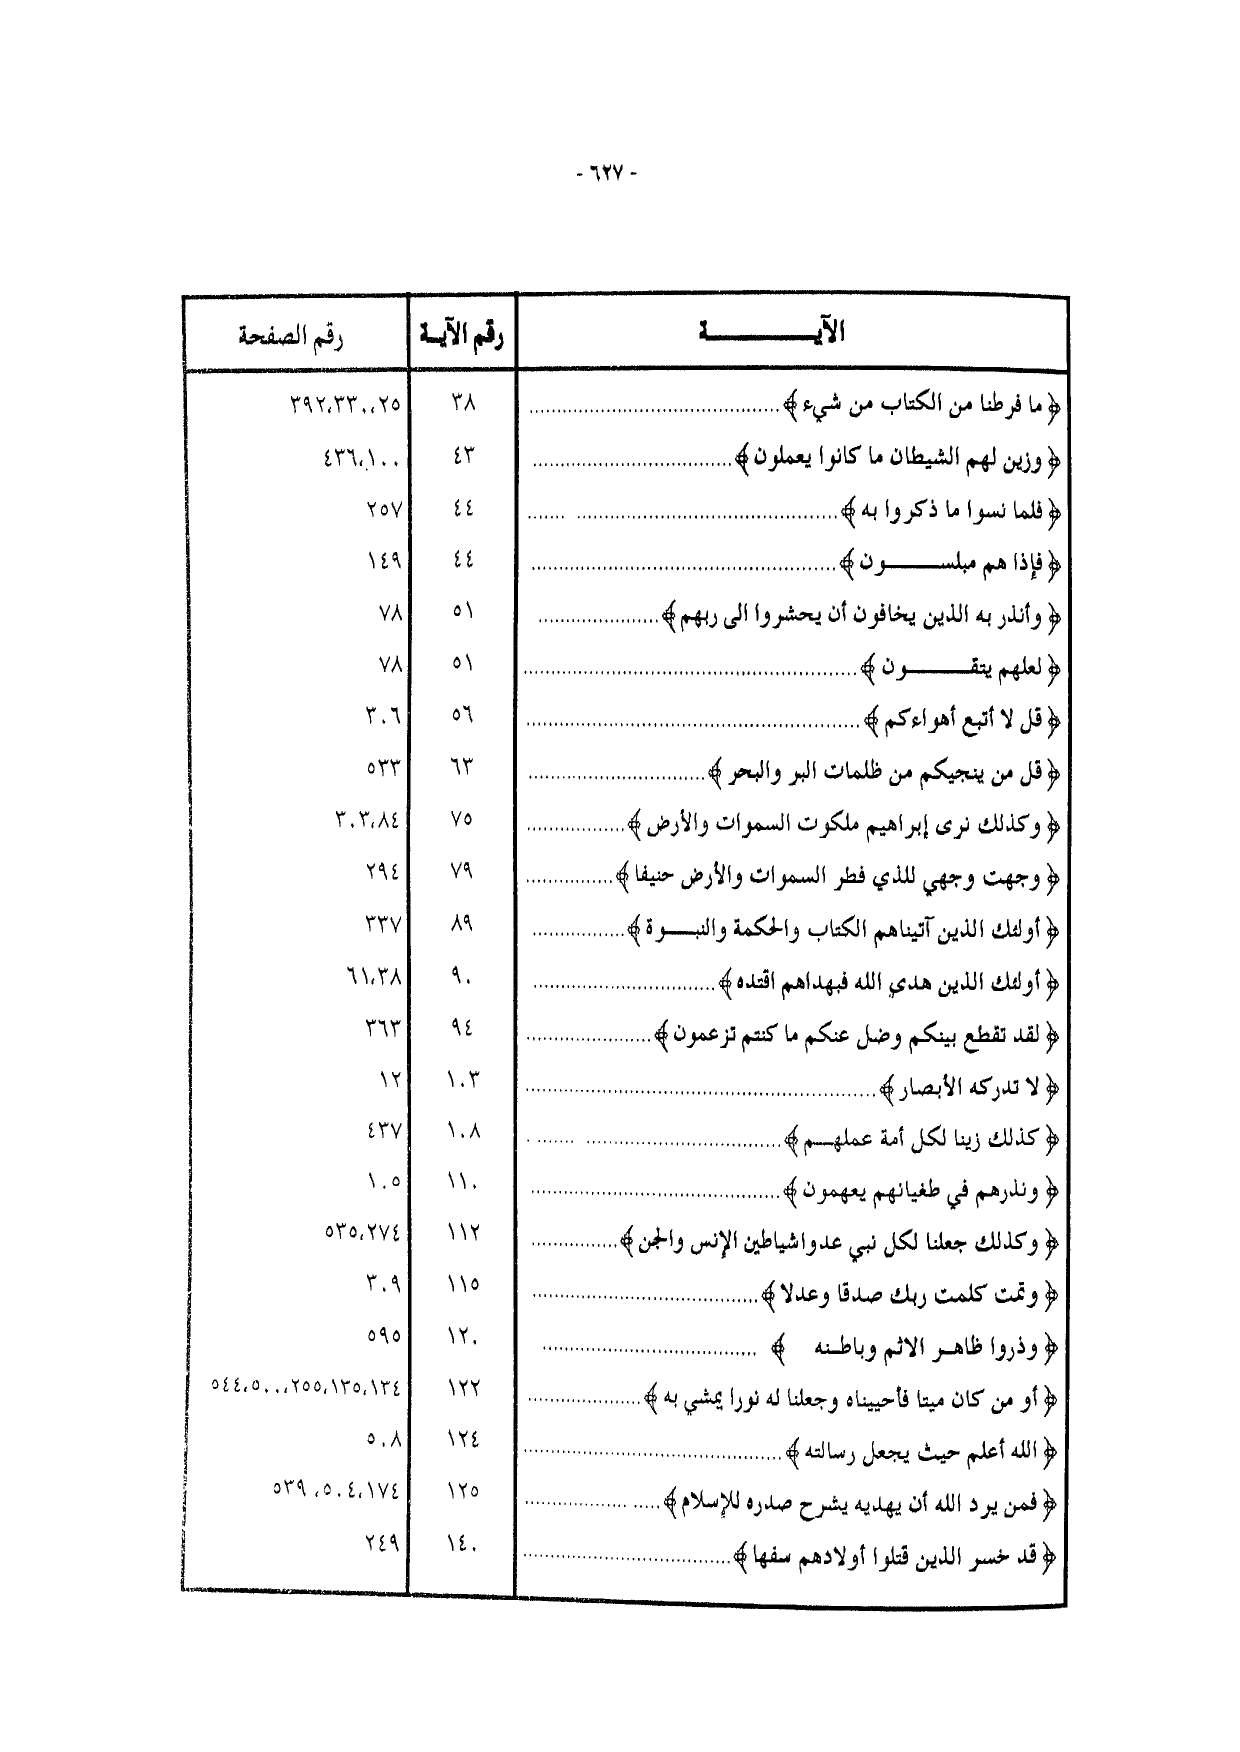 - ٦٢٧ -
الآيـــــــــــة رقم الآيـة رقم الصفحة
﴿ ما فرطنا من الكتاب من شيء ﴾ ........ ٣٨ ٢٥،٣٣٠،٣٩٢
﴿ وزين لهم الشيطان ما كانوا يعملون ﴾ ........ ٤٣ ١٠٠،٤٣٦
﴿ فلما نسوا ما ذكروا به ﴾ ........ ٤٤ ٢٥٧
﴿ فإذا هم مبلســــــون ﴾ ........ ٤٤ ١٤٩
﴿ وأنذر به الذين يخافون أن يحشروا الى ربهم ﴾ ........ ٥١ ٧٨
﴿ لعلهم يتقــــــون ﴾ ........ ٥١ ٧٨
﴿ قل لا أتبع أهواءكم ﴾ ........ ٥٦ ٣٠٦
﴿ قل من ينجيكم من ظلمات البر والبحر ﴾ ........ ٦٣ ٥٣٣
﴿ وكذلك نرى إبراهيم ملكوت السموات والأرض ﴾ ........ ٧٥ ٨٤،٣٠٣
﴿ وجهت وجهي للذي فطر السموات والأرض حنيفا ﴾ ........ ٧٩ ٢٩٤
﴿ أولئك الذين آتيناهم الكتاب والحكمة والنبـــوة ﴾ ........ ٨٩ ٣٣٧
﴿ أولئك الذين هدي الله فبهداهم اقتده ﴾ ........ ٩٠ ٣٨،٦١
﴿ لقد تقطع بينكم وضل عنكم ما كنتم تزعمون ﴾ ........ ٩٤ ٣٦٣
﴿ لا تدركه الأبصار ﴾ ........ ١٠٣ ١٢
﴿ كذلك زينا لكل أمة عملهـم ﴾ ........ ١٠٨ ٤٣٧
﴿ ونذرهم في طغيانهم يعمهون ﴾ ........ ١١٠ ١٠٥
﴿ وكذلك جعلنا لكل نبي عدواشياطين الإنس والجن ﴾ ........ ١١٢ ٢٧٤،٥٣٥
﴿ وتمت كلمت ربك صدقا وعدلا ﴾ ........ ١١٥ ٣٠٩
﴿ وذروا ظاهـر الاثم وباطـنه ﴾ ........ ١٢٠ ٥٩٥
﴿ أو من كان ميتا فأحييناه وجعلنا له نورا يمشي به ﴾ ........ ١٢٢ ١٣٤،١٣٥،٢٥٥،٥٠٠،٥٤٤
﴿ الله أعلم حيث يجعل رسالته ﴾ ........ ١٢٤ ٥٠٨
﴿ فمن يرد الله أن يهديه يشرح صدره للإسلام ﴾ ........ ١٢٥ ١٧٤،٥٠٤،٥٣٩
﴿ قد خسر الذين قتلوا أولادهم سفها ﴾ ........ ١٤٠ ٢٤٩